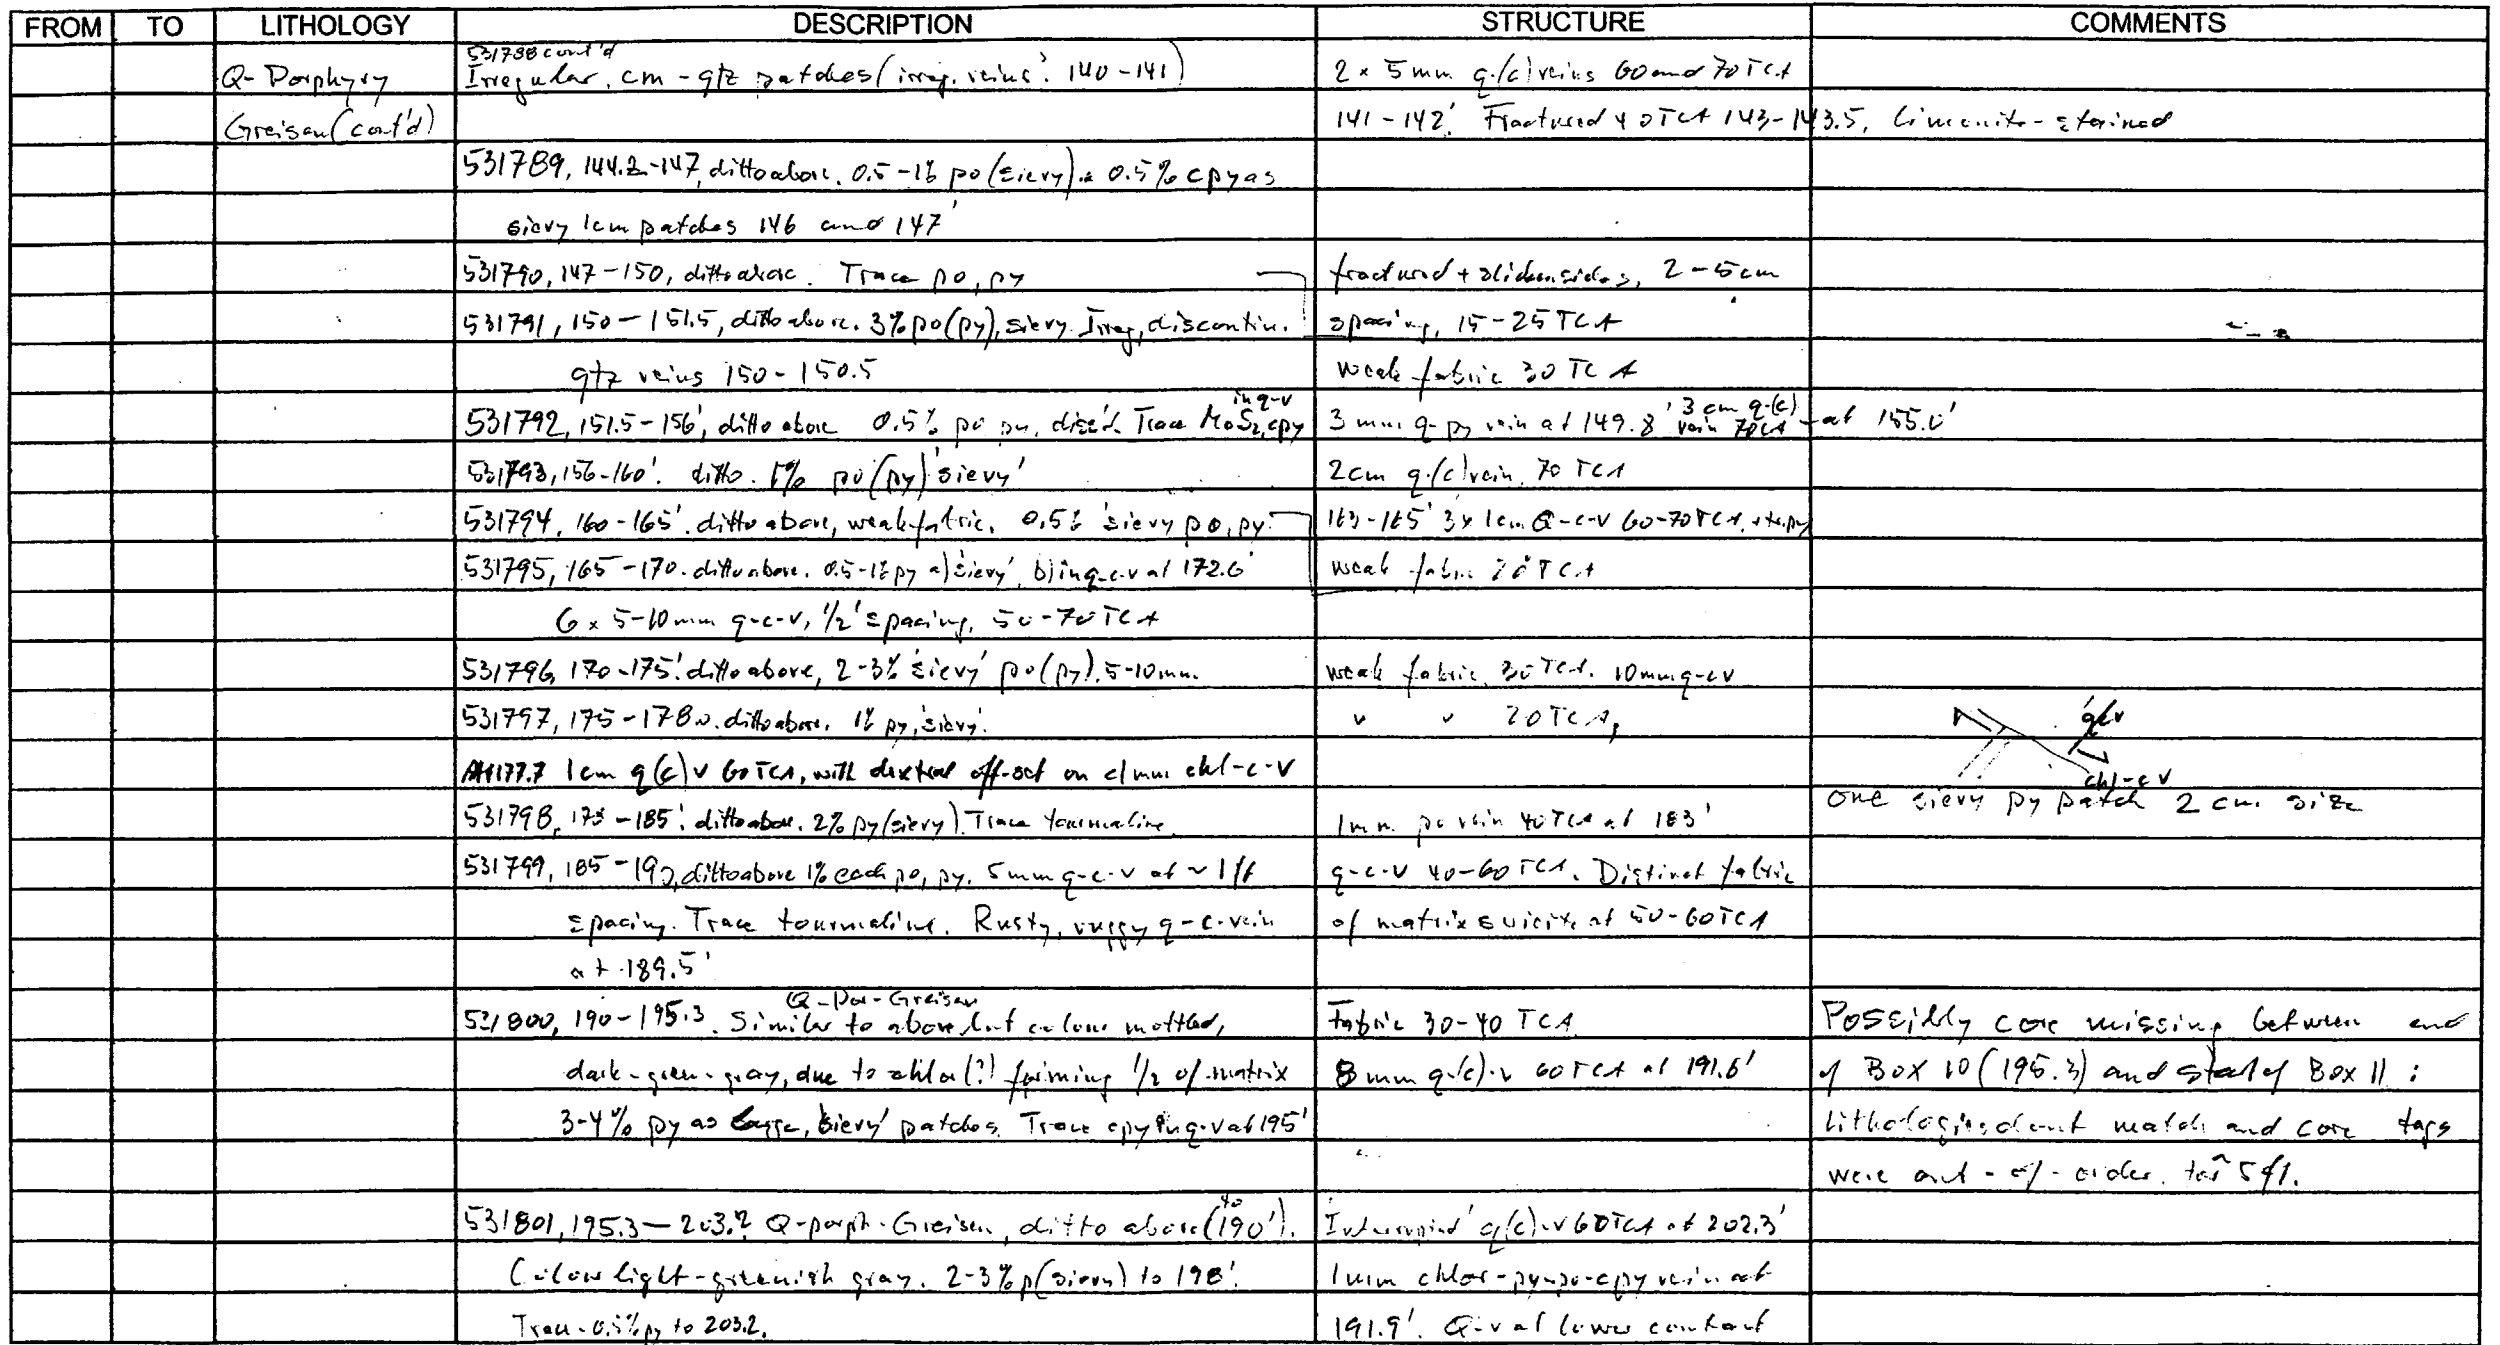 FROM TO LITHOLOGY DESCRIPTION STRUCTURE COMMENTS
531788 cont'd
Q-Porphyry Irregular, cm-qtz patches (irreg. veins: 140-141) 2 x 5mm q.(c) veins 60 and 70 TCA
Greisen (cont'd) 141-142'. Fractured 40 TCA 143-143.5, limonite-stained
531789, 144.2-147, ditto above. 0.5-1% po (sievy). 0.5% cpy as
sievy 1cm patches 146 and 147'
531790, 147-150, ditto above. Trace po, py fractured + slickensides, 2-5cm
531791, 150-151.5, ditto above. 3% po(py), sievy. Irreg, discontin. spacing, 15-25 TCA
qtz veins 150-150.5 weak fabric 30 TCA
in q-v 3 cm q-(c)
531792, 151.5-156', ditto above 0.5% po py, diss'd. Trace MoS2, cpy 3 mm q-py vein at 149.8' vein 70CA at 155.0'
531793, 156-160'. ditto. 1% po (py) 'sievy' 2cm q.(c) vein, 70 TCA
531794, 160-165'. ditto above, weak fabric. 0.5% 'sievy po, py. 163-165' 3x 1cm Q-c-v 60-70 TCA, + tr. py
531795, 165-170. ditto above. 0.5-1% py a) 'sievy', b) in q-c-v at 172.6' weak fabric 20 TCA
6 x 5-10mm q-c-v, 1/2' spacing, 50-70 TCA
531796, 170-175'. ditto above, 2-3% 'sievy' po (py). 5-10mm. weak fabric, 30 TCA. 10mm q-c v
531797, 175-178. ditto above. 1% py, 'sievy'. " " 20 TCA,
qcv
At 177.7 1cm q(c) v 60 TCA, with dextral off-set on <1mm chl-c-v
chl-c v
531798, 178-185'. ditto above. 2% py (sievy). Trace tourmaline. 1mm po vein 40 TCA at 183' one sievy py patch 2 cm size
531799, 185-190, ditto above 1% each po, py. 5mm q-c-v at ~1/ft q-c-v 40-60 TCA. Distinct fabric
spacing. Trace tourmaline. Rusty, vuggy q-c-vein of matrix sericite at 50-60 TCA
at 189.5'
Q-Por-Greisen
531800, 190-195.3. Similar to above but colour mottled, Fabric 30-40 TCA. Possibly core missing between end
dark-green-gray, due to chlor(?) forming 1/2 of matrix 8 mm q.(c).v 60 TCA at 191.6' of Box 10 (195.3) and start of Box 11:
3-4% py as large, 'sievy' patches. Trace cpy in q-v at 195' Lithologies dont match and core tags
were out-of-order for ~5 ft.
to
531801, 195.3-203.2 Q-porph-Greisen, ditto above (190'). q(c).v 60 TCA at 202.3'
Colour light-greenish gray. 2-3% p (sievy) to 198'. 1mm chlor-py-po-cpy vein at
Trace-0.5% py to 203.2. 191.9'. Q-v at lower contact